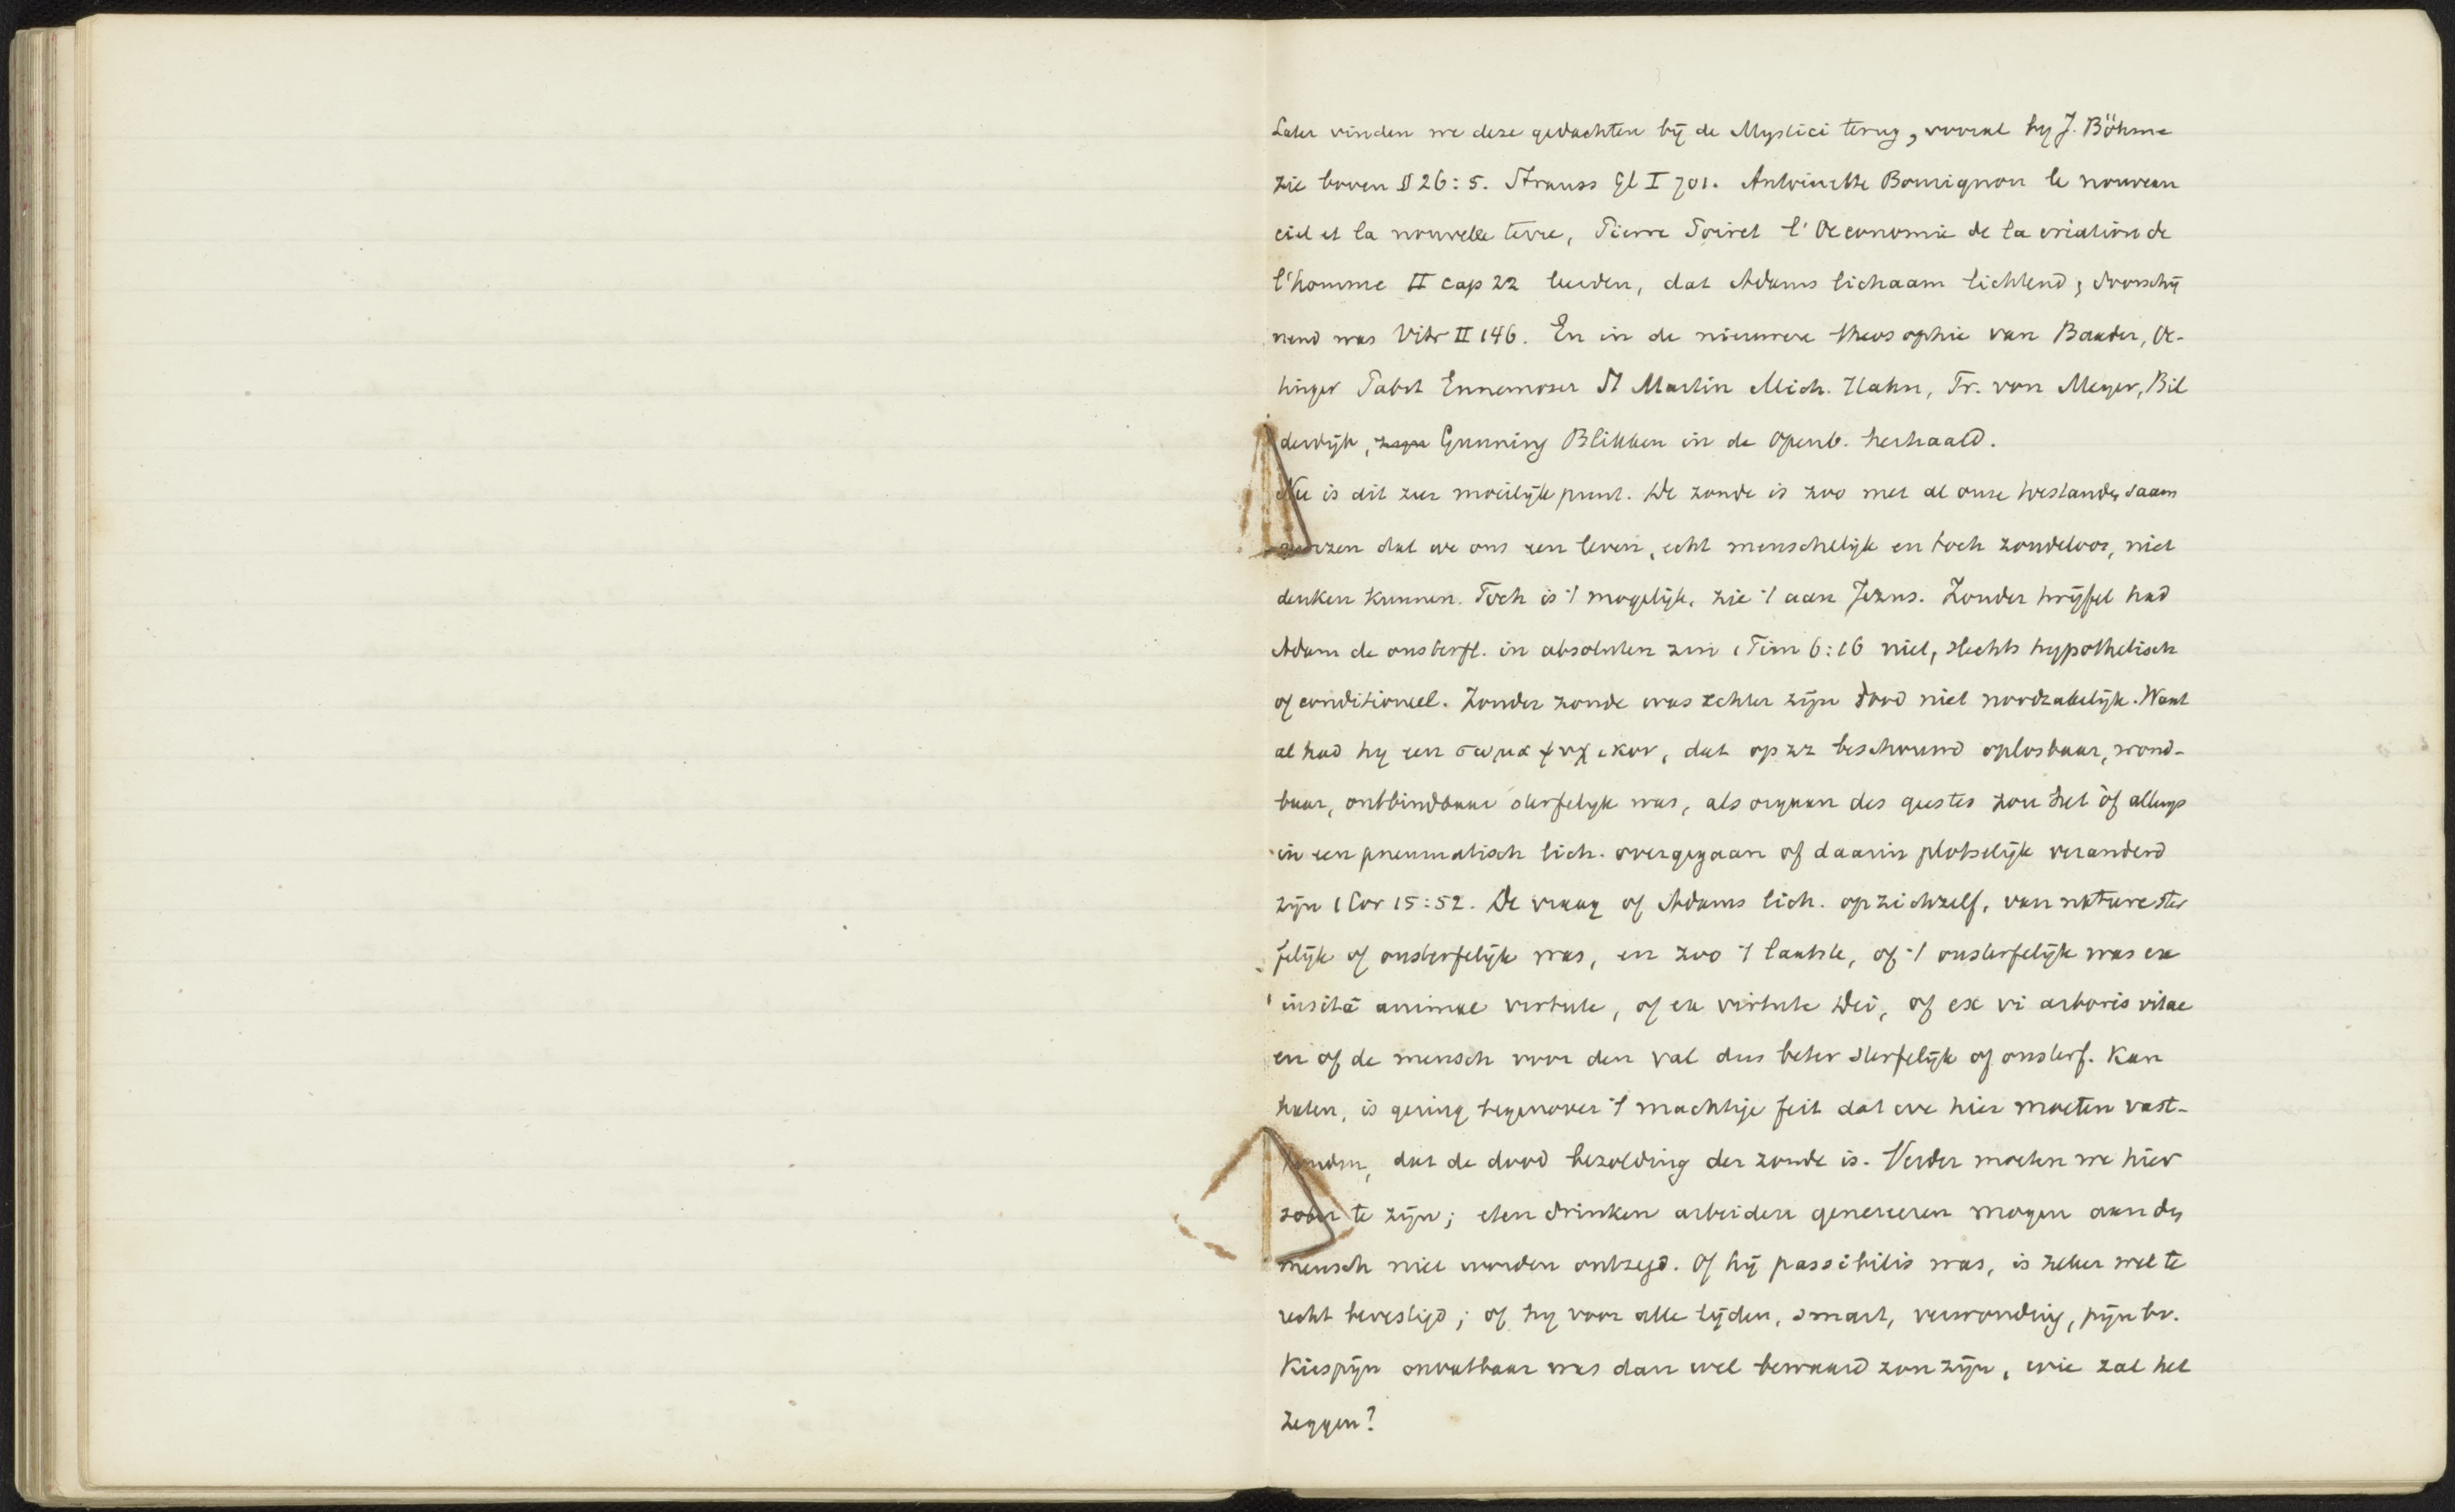 Later vinden we deze gedachten bij de Mystici terug, vooral by J. Böhme
zie boven § 26: 5. Strauss Gl I 701. Antoinette Bourignon le nouveau
ciel et la nouvelle terre, Pierre Poiret l'Oeconomie de la création de
l'homme II cap 22 leerden, dat Adams lichaam lichtend, doorschij
nend was Vitr II 146. En in de nieuwere theosophie van Baader, Oe-
tinger Pabst Ennemoser St Martin Mich. Hahn, Fr. von Meyer, Bil
derdijk, Gunning Blikken in de Openb. herhaald.
Nu is dit zeer moeilijk punt. De zonde is zoo met al onze toestanden saam
dat we ons een leven, echt menschelijk en toch zondeloos, niet
denken kunnen. Toch is 't mogelijk, zie 't aan Jezus. Zonder twijfel had
Adam de onsterfl. in absoluten zin 1 Tim 6:16 niet, slechts hypothetisch
of conditioneel. Zonder zonde was echter zijn dood niet noodzakelijk. Want
al had hy een σωμα ψυχικον, dat op zz beschouwd oplosbaar, wond-
baar, ontbindbaar sterfelyk was, als orgaan des geestes zou het òf allengs
in een pneumatisch lich. overgegaan of daarin plotselijk veranderd
zijn 1 Cor 15:52. De vraag of Adams lich. op zichzelf, van nature ster
felijk of onsterfelijk was, en zoo 't laatste, of 't onsterfelijk was ex
insitâ animae virtute, of ex virtute Dei, of ex vi arboris vitae
en of de mensch voor den val dus beter sterfelijk of onsterf. kan
heten, is gering tegenover 't machtige feit dat we hier moeten vast-
houden, dat de dood bezolding der zonde is. Verder moeten we hier
sober te zijn; eten drinken arbeiden genereeren mogen aan den
mensch niet worden ontzegd. Of hij passibilis was, is zeker wel te
recht bevestigd; of hy voor alle lijden, smart, verwonding, pijn bv.
Kiespijn onvatbaar was dan wel bewaard zou zijn, wie zal het
zeggen?